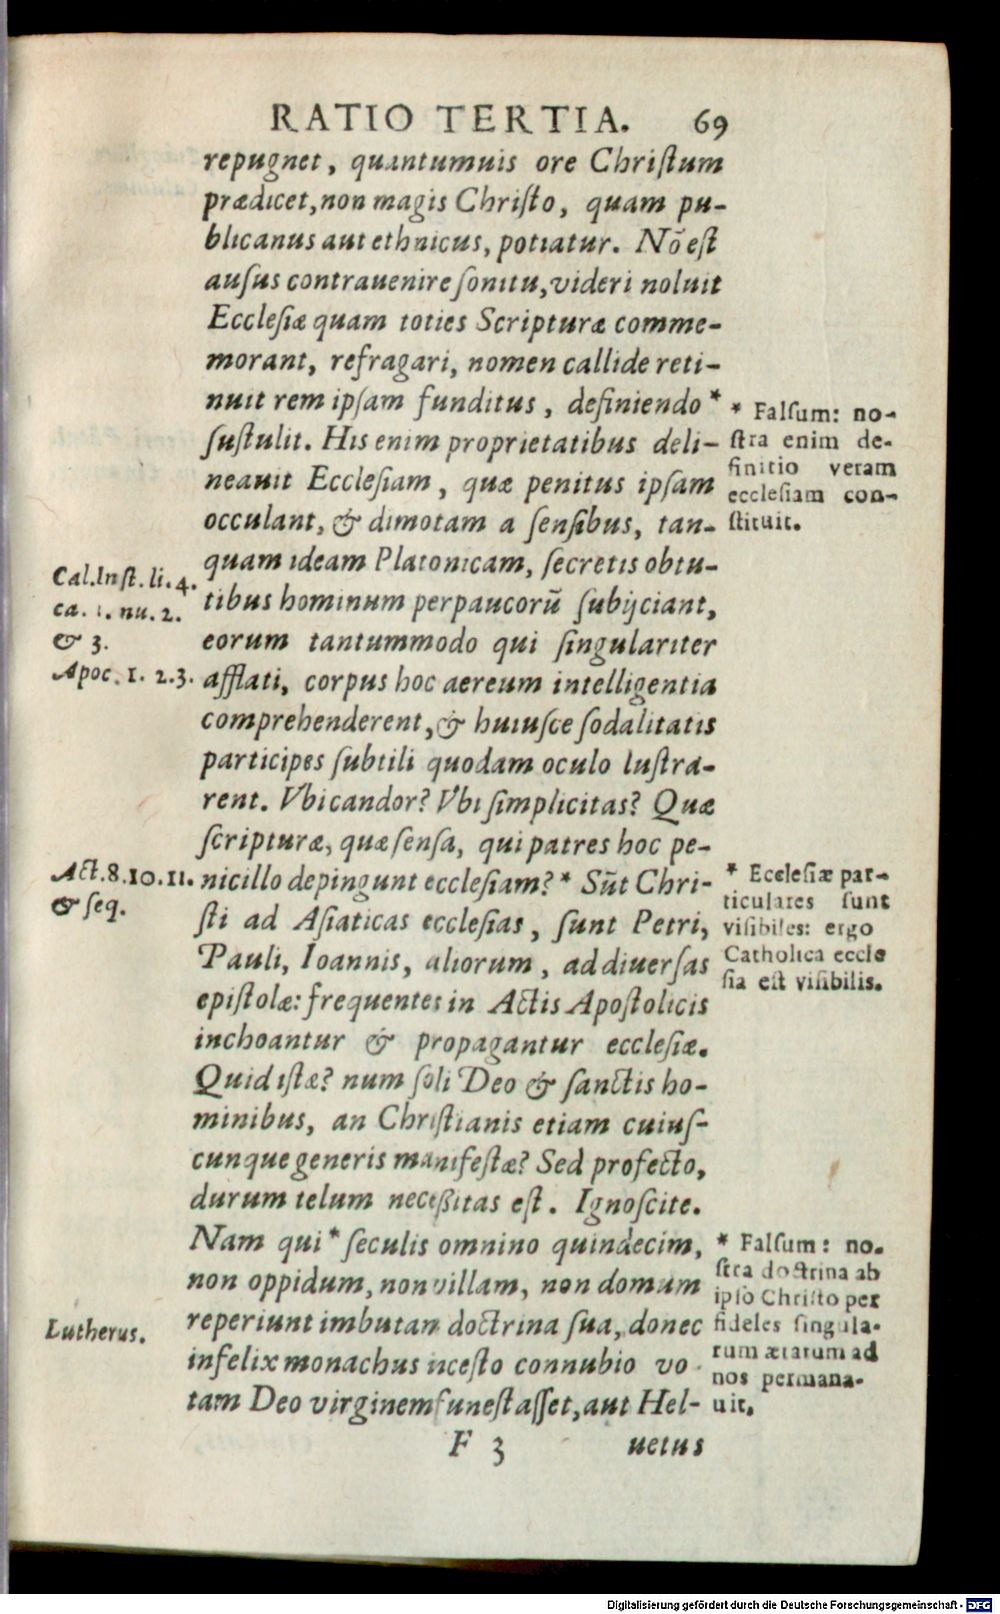 RATIO TERTIA. 69
repugnet, quantumuis ore Chriſtum
prædicet, non magis Chriſto, quam pu-
blicanus aut ethnicus, potiatur. Nõ eſt
auſus contrauenire ſonitu, videri noluit
Eccleſiæ quam toties Scripturæ comme-
morant, refragari, nomen callide reti-
nuit rem ipſam funditus, definiendo *
ſuſtulit. His enim proprietatibus deli-
neauit Eccleſiam, quæ penitus ipſam
occulant, & dimotam a ſenſibus, tan-
quam ideam Platonicam, ſecretis obtu-
tibus hominum perpaucorũ ſubijciant,
eorum tantummodo qui ſingulariter
afflati, corpus hoc aereum intelligentia
comprehenderent, & huiuſce ſodalitatis
participes ſubtili quodam oculo luſtra-
rent. Vbi candor? Vbi ſimplicitas? Quæ
ſcripturæ, quæ ſenſa, qui patres hoc pe-
nicillo depingunt eccleſiam? * Sũt Chri-
ſti ad Aſiaticas eccleſias, ſunt Petri,
Pauli, Ioannis, aliorum, ad diuerſas
epiſtolæ: frequentes in Actis Apoſtolicis
inchoantur & propagantur eccleſiæ.
Quid iſtæ? num ſoli Deo & ſanctis ho-
minibus, an Chriſtianis etiam cuiuſ-
cunque generis manifeſtæ? Sed profecto,
durum telum neceßitas eſt. Ignoſcite.
Nam qui * ſeculis omnino quindecim,
non oppidum, non villam, non domum
reperiunt imbutam doctrina ſua, donec
infelix monachus inceſto connubio vo
tam Deo virginem funeſtaſſet, aut Hel-
F 3 uetus
* Falſum: no-
ſtra enim de-
finitio veram
eccleſiam con-
ſtituit.
Cal. Inſt. li. 4.
ca. 1. nu. 2.
& 3.
Apoc. 1. 2. 3.
Act. 8. 10. 11.
& ſeq.
* Eccleſiæ par-
ticulares ſunt
viſibiles: ergo
Catholica eccle
ſia eſt viſibilis.
* Falſum: no-
ſtra doctrina ab
ipſo Chriſto per
fideles ſingula-
rum ætatum ad
nos permana-
uit.
Lutherus.
Digitalisierung gefördert durch die Deutsche Forschungsgemeinschaft - DFG